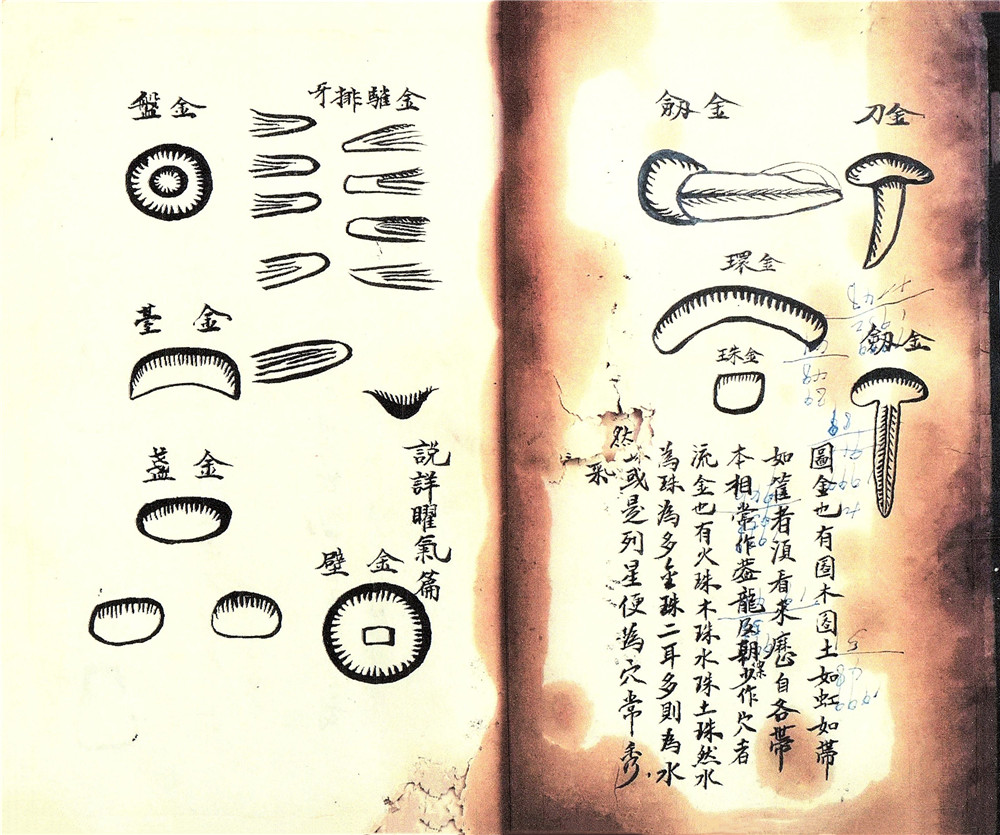 金刀
金劔
金劔
金環
金珠
金也有木土如虹如帶
如者須看來歷自各帶
本相常作龍及朝少作穴者
流金也有火珠木珠水珠土珠然水
為珠為多金珠二耳多則為水
然
或是列星便為穴常秀
采
金排牙
說詳曜氣篇
金盤
金臺
金盞
金壁